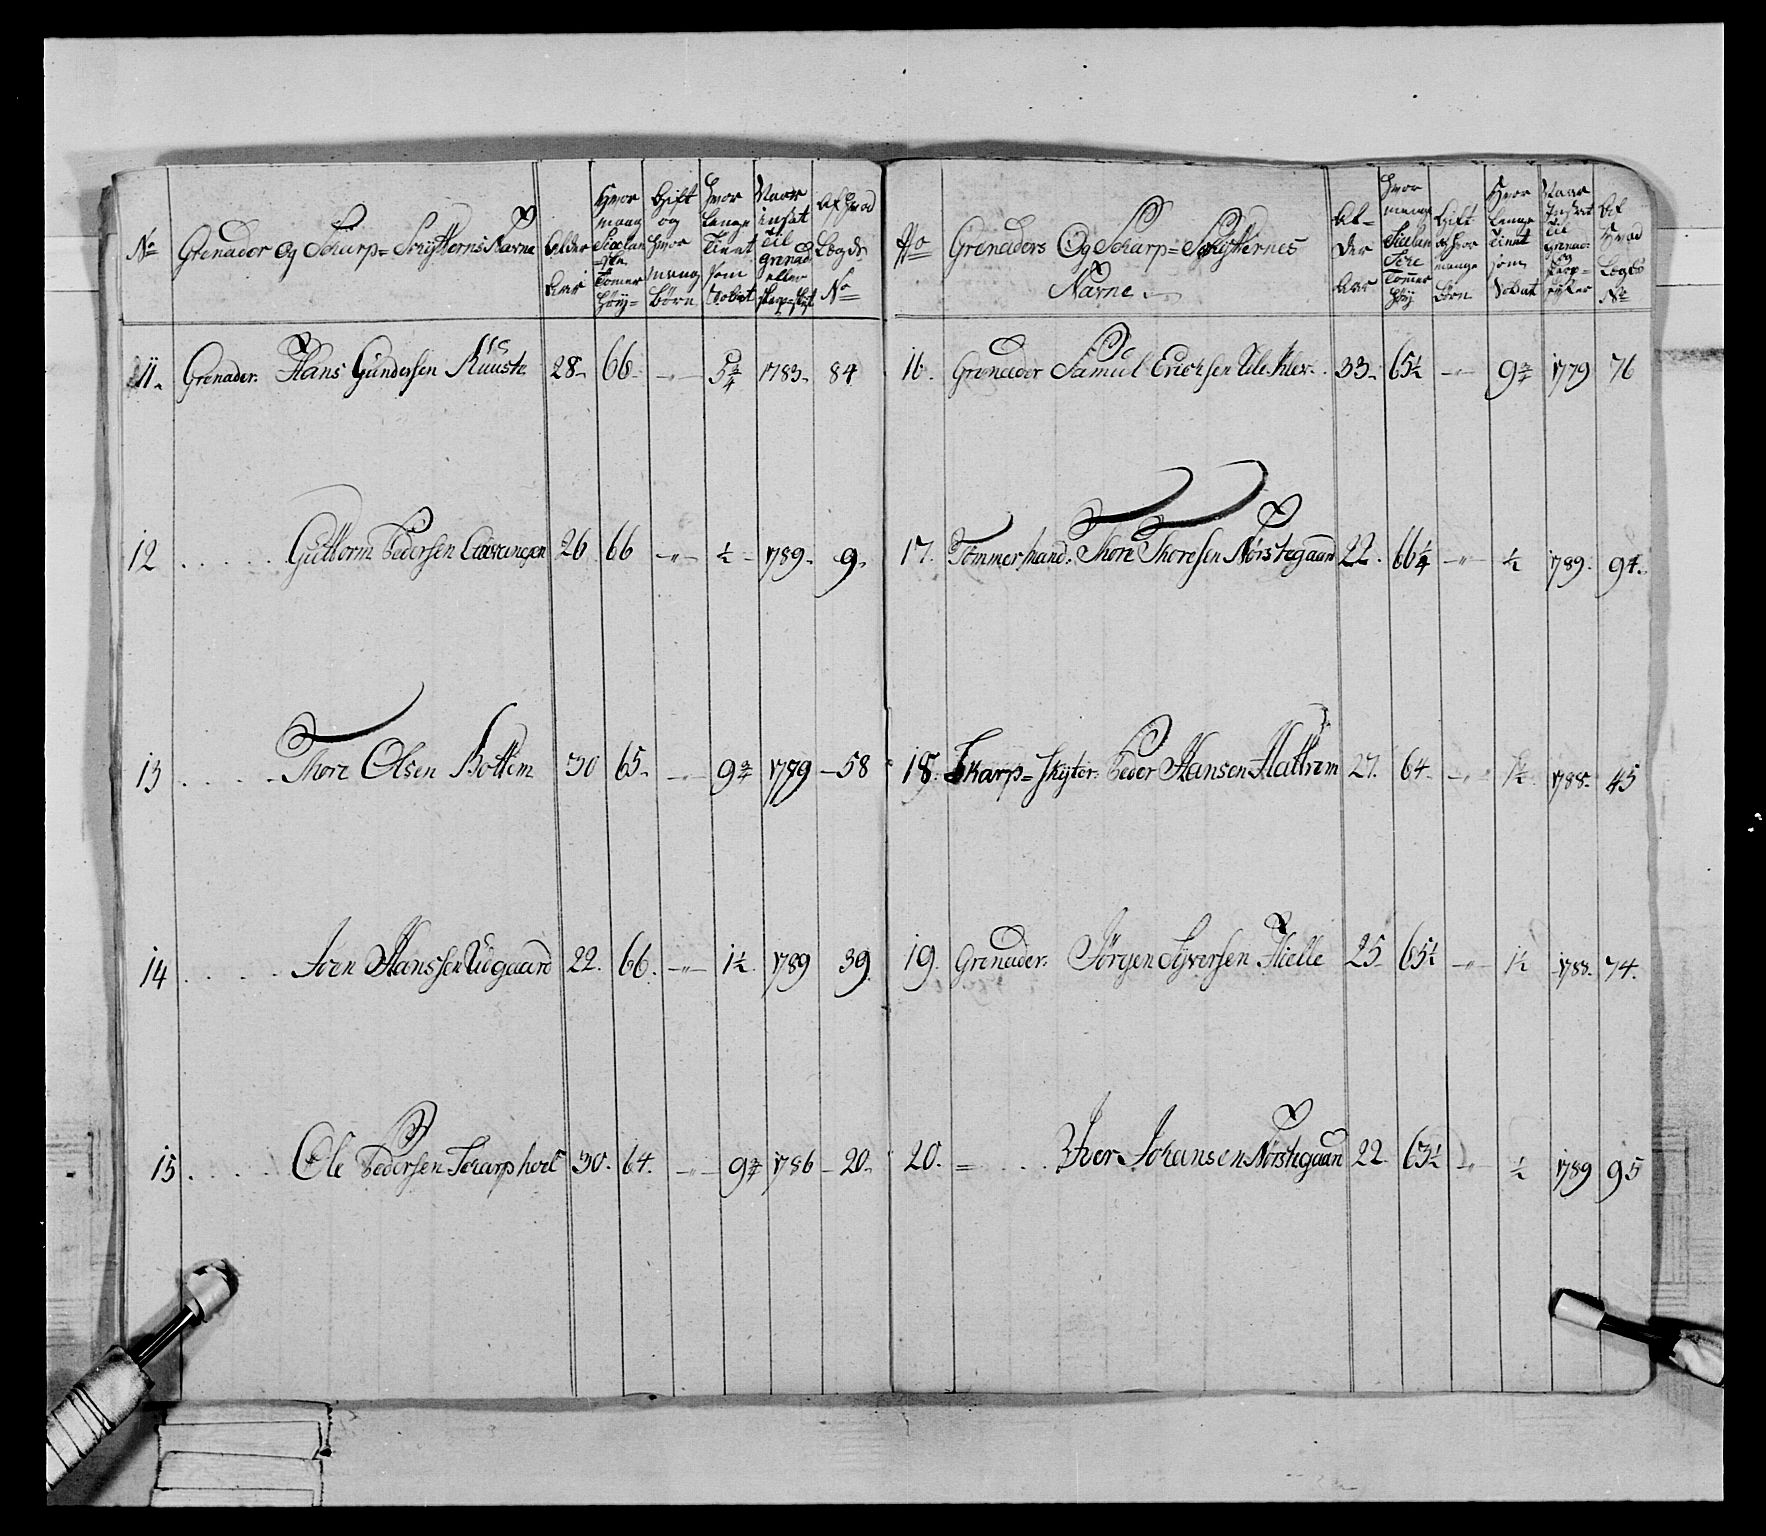 No
Grenader Og Scharp=Schytternes Navne
Alder
Aar
Hvor
mang
Siælan
ske
Tomer
Høy=
Gift
og
Hvor
mang
Børn
Hvor
Længe
Tient
som
Soldat
Naar
indsat
til
Grenad
eller
skarp=skyt
Af Hvad
Lægds
No
11. Grenader. Hans Gundersen Ruuste 28- 66- -"- 5 3/4 1783- 84
12 . . . . . Guttorm Pedersen 26 66 -"- 1/2 - 1789- 9-
13 . . . . . Thore Olsen Bottem 30 65- -"- 9 3/4 1779 - 58
14 . . . . . Joen Hanssen Udgaard 22. 66. -"- 1 1/2. 1789 39.
15 . . . . Ole Pedersen Scharphoel 30. 64. -"- 9 3/4 1786 - 20-
No
Grenaders Og Scharp=Schytternes
Navne
Al-
der
Aar
Hvor
mange
Siælan
Tommer
Høy
Gift
og hvor
mange
Børn
Hvor
Længe
tient
som
Soldat
Naar
Indsat
til
Grenad:
og
skarp=
Af
Hvad
Lægds
No
16. Grenader Samuel Ericksen 33- 65 1/2 -"- 9 3/4 1779 76
17. Tømmermand. Thore Thoresen Nørstegaard 22. 66 1/4 -"- 1/2 1789. 94.
18. Skarp=skytter. Peder Hansen Hattrem 27. 64- -"- 1 1/2. 1788- 45
19. Grenader. Jörgen Syversen Hielle 25 65 1/2 -"- 1 1/2 1788- 74.
20. = . . . Iver Johansen Nørstegaard 22. 63 1/2 -"- 1/2 1789 95